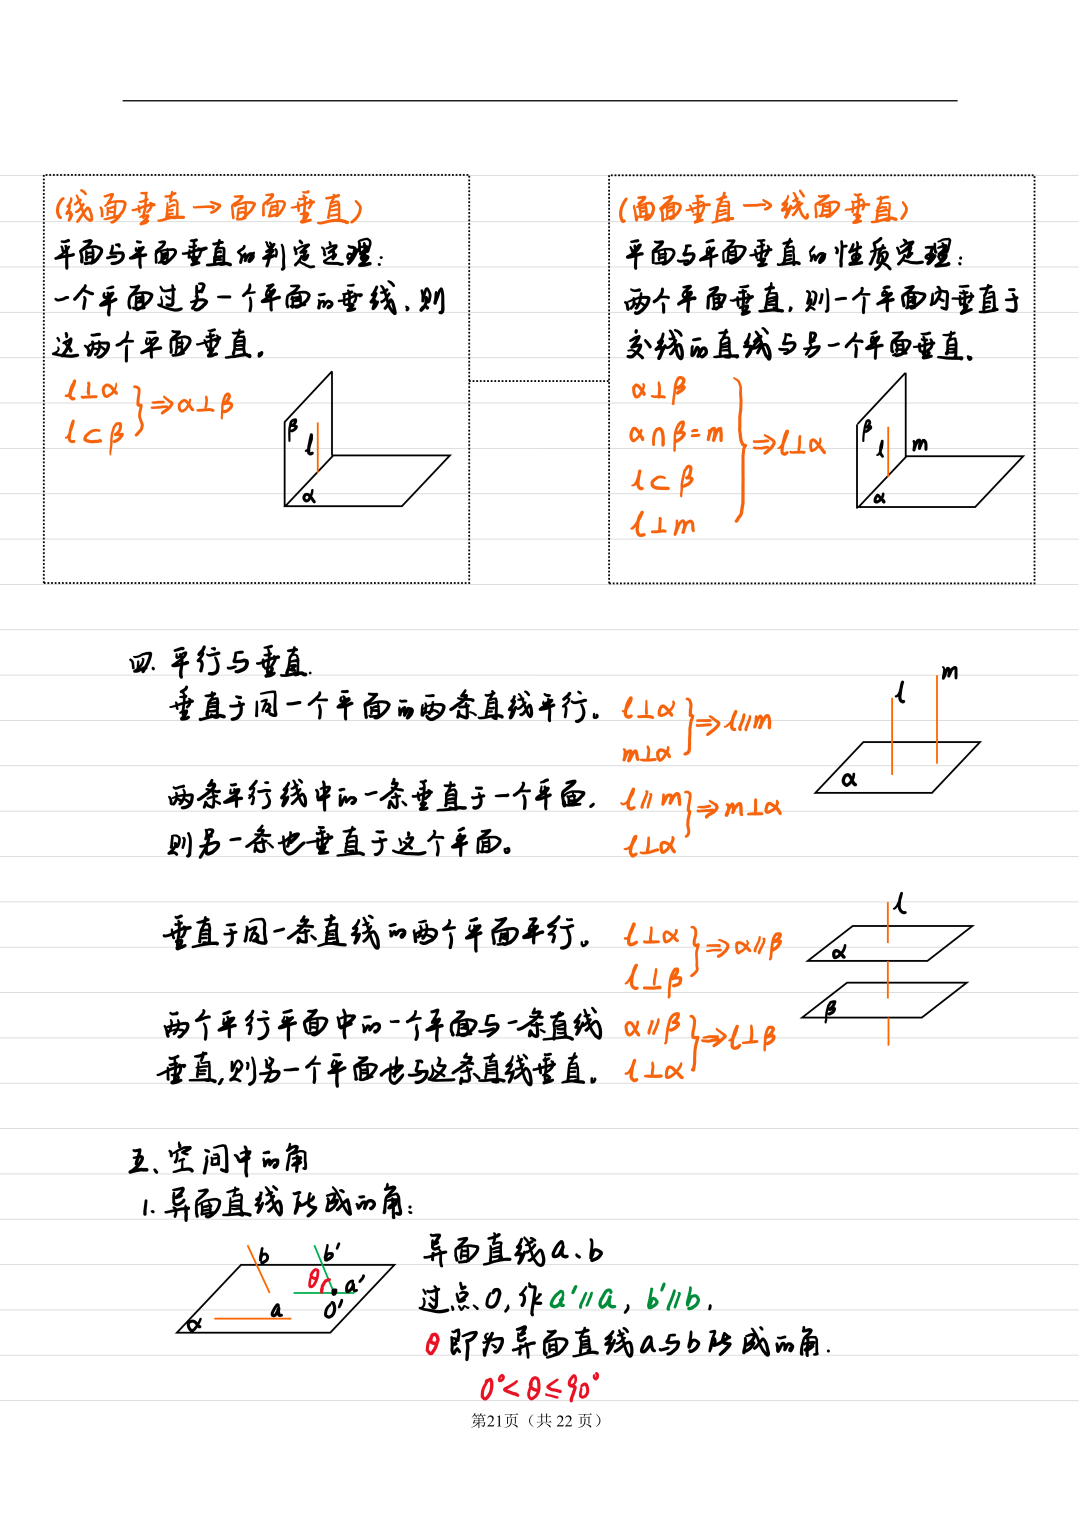 (线面垂直→面面垂直)
平面与平面垂直的判定定理:
一个平面过另一个平面的垂线,则
这两个平面垂直。
l⊥α
l⊂β
} ⇒α⊥β
β
l
α
(面面垂直→线面垂直)
平面与平面垂直的性质定理:
两个平面垂直,则一个平面内垂直于
交线的直线与另一个平面垂直。
α⊥β
α∩β=m
l⊂β
l⊥m
} ⇒l⊥α
β
l
m
α
四.平行与垂直.
垂直于同一个平面的两条直线平行。
l⊥α
m⊥α
} ⇒l∥m
l
m
α
两条平行线中的一条垂直于一个平面,
则另一条也垂直于这个平面。
l∥m
l⊥α
} ⇒m⊥α
垂直于同一条直线的两个平面平行。
l⊥α
l⊥β
} ⇒α∥β
l
α
β
两个平行平面中的一个平面与一条直线
垂直,则另一个平面也与这条直线垂直。
α∥β
l⊥α
} ⇒l⊥β
五、空间中的角
1.异面直线所成的角:
b
b'
θ
a'
a
O'
α
异面直线a、b
过点O,作a'∥a, b'∥b,
θ即为异面直线a与b所成的角.
0°<θ≤90°
第21页(共 22 页)